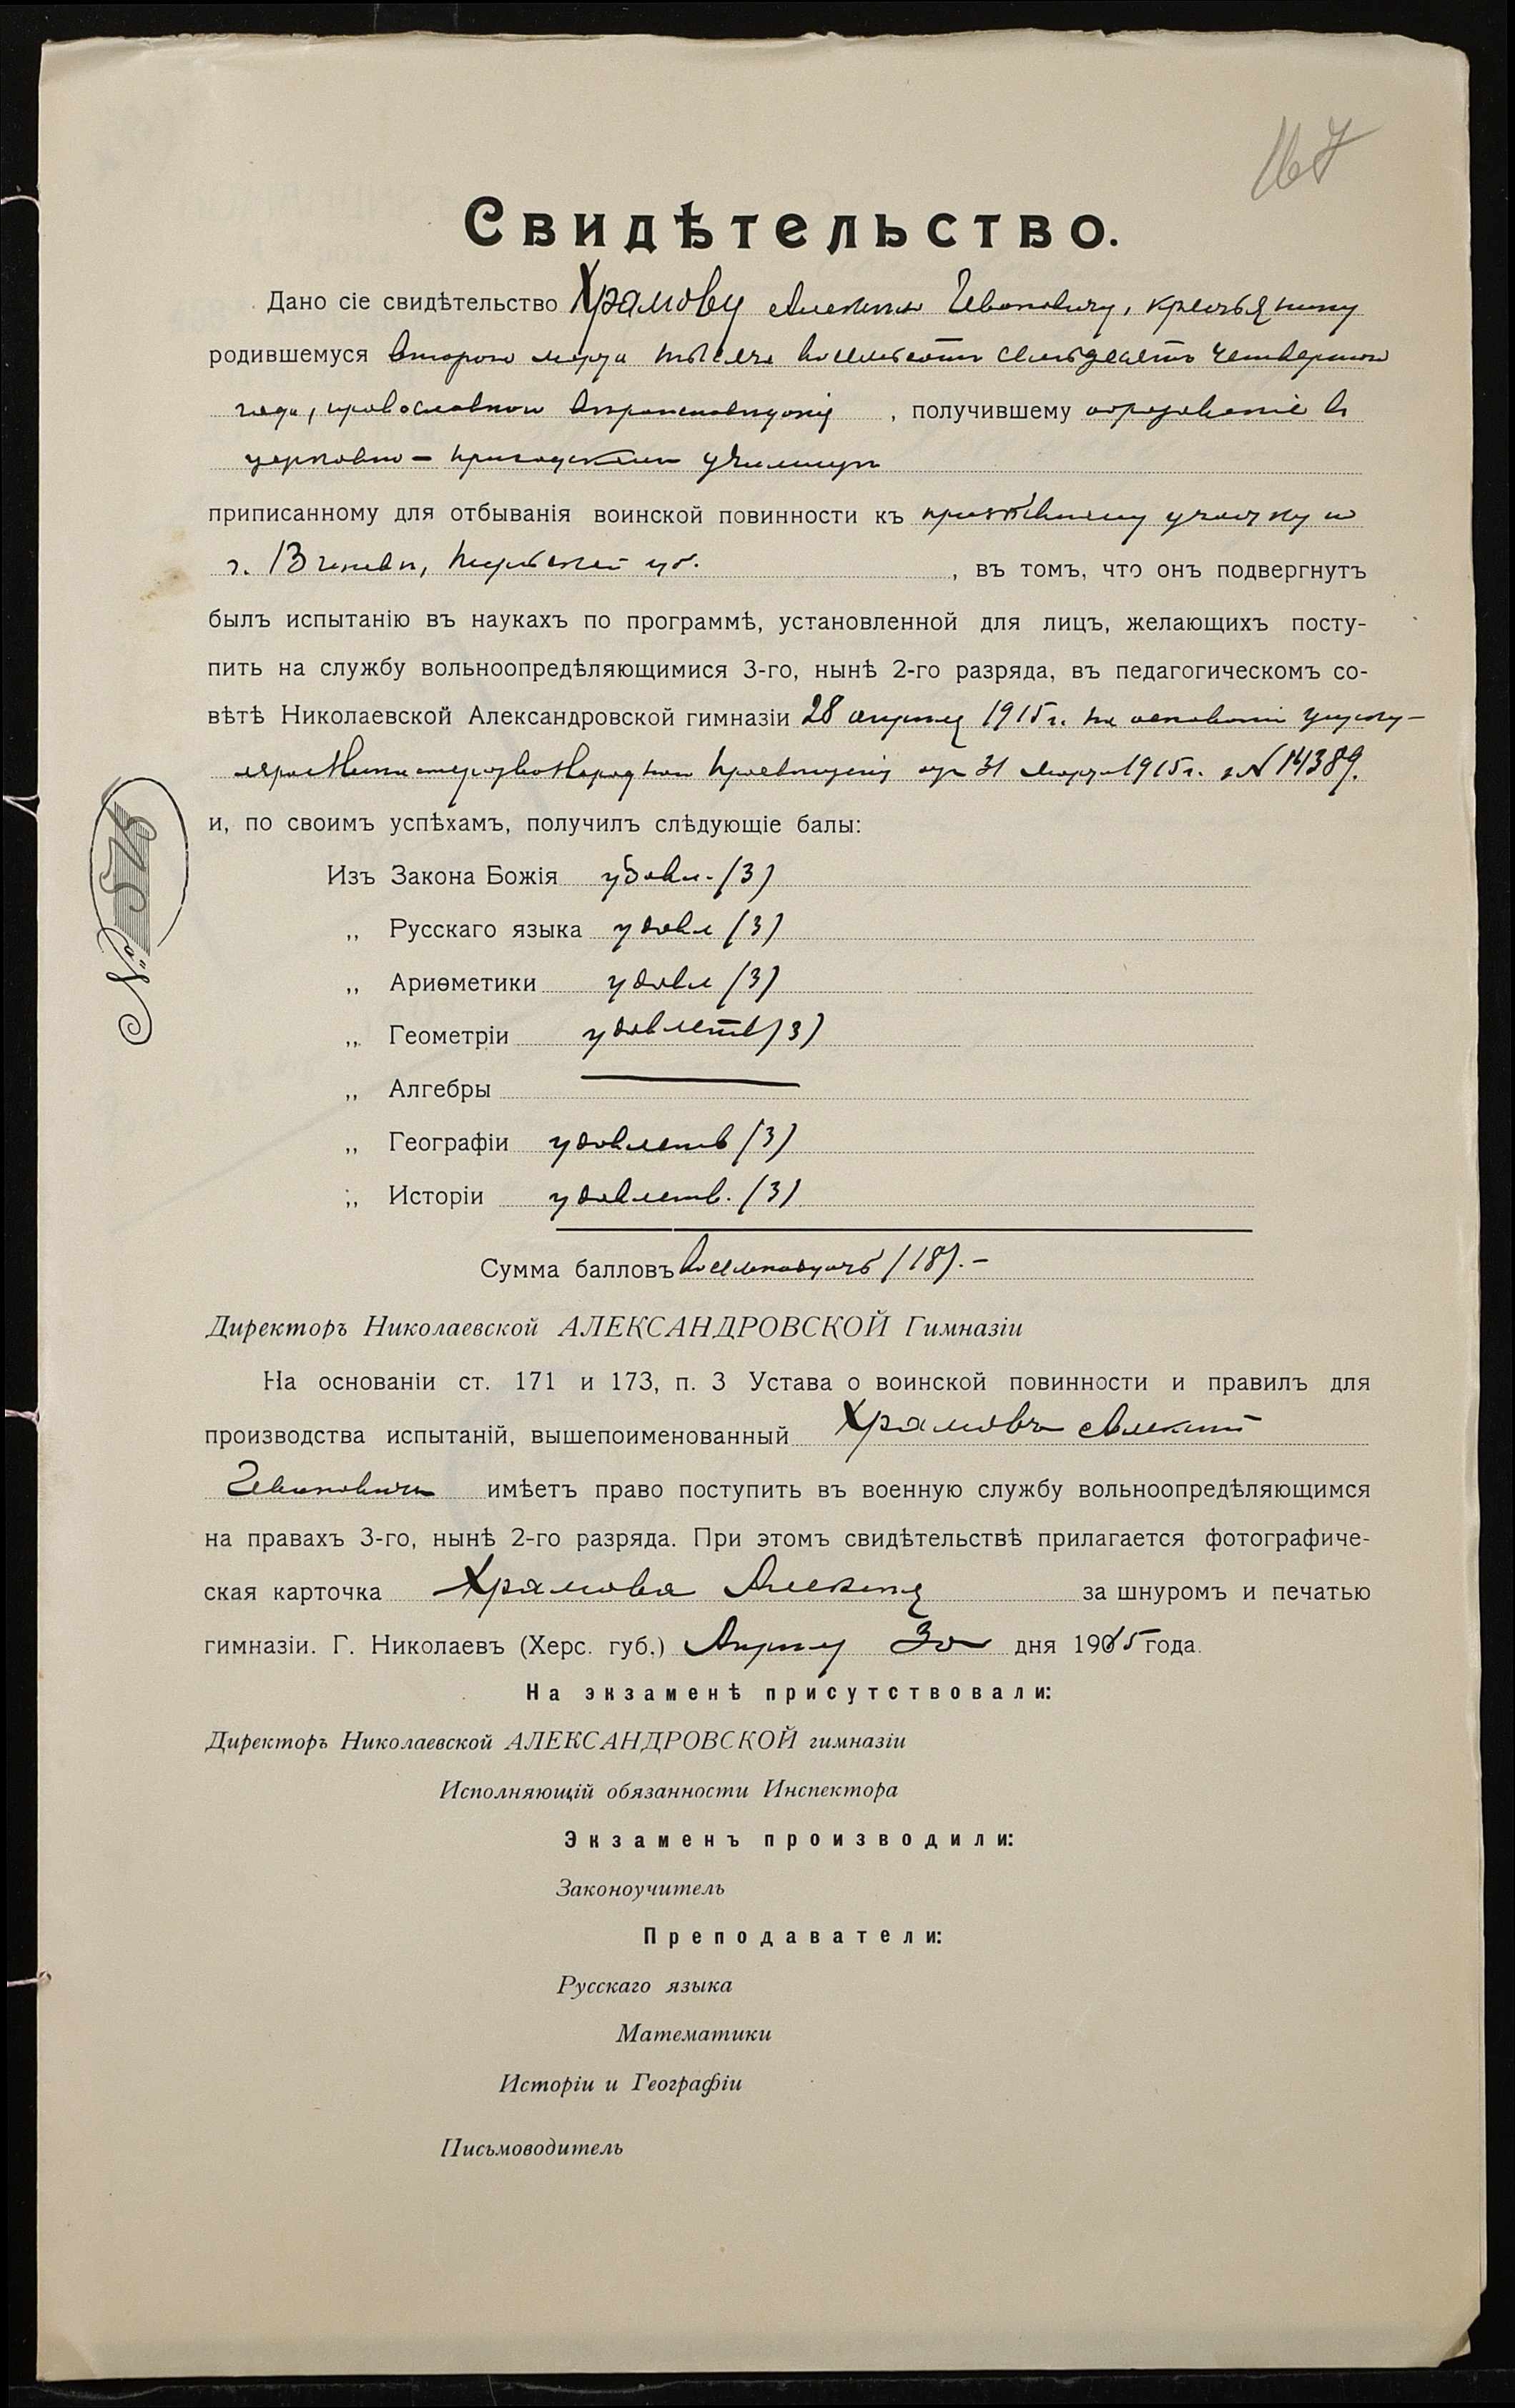 167
Свидѣтельство.
Дано сіе свидѣтельство Храмову Алексѣю Ивановичу, крестьянину
родившемуся второго марта тысяча восемьсотъ семьдесятъ четвертого
года, православного вѣроисповѣданія, получившему образованіе въ
церковно-приходскомъ училищѣ
приписанному для отбыванія воинской повинности къ призывному участку
г. губ., въ томъ, что онъ подвергнутъ
былъ испытанію въ наукахъ по программѣ, установленной для лицъ, желающихъ посту-
пить на службу вольноопредѣляющимися 3-го, нынѣ 2-го разряда, въ педагогическомъ со-
вѣтѣ Николаевской Александровской гимназіи 28 апрѣля 1915 г. на основаніи циркул-
яра Министерства Народнаго Просвѣщенія отъ 31 марта 1915 г. з № 14389.
и, по своимъ успѣхамъ, получилъ слѣдующіе балы:
№ 578
Изъ Закона Божія удовл. (3)
„ Русскаго языка удовл (3)
„ Ариѳметики удовл (3)
„ Геометріи удовлетв (3)
„ Алгебры —
„ Географіи удовлетв (3)
„ Исторіи удовлетв. (3)
Сумма балловъ восемнадцать (18). –
Директоръ Николаевской АЛЕКСАНДРОВСКОЙ Гимназіи
На основаніи ст. 171 и 173, п. 3 Устава о воинской повинности и правилъ для
производства испытаній, вышепоименованный Храмовъ Алексѣй
Ивановичъ имѣетъ право поступить въ военную службу вольноопредѣляющимся
на правахъ 3-го, нынѣ 2-го разряда. При этомъ свидѣтельствѣ прилагается фотографиче-
ская карточка Храмова Алексѣя за шнуромъ и печатью
гимназіи. Г. Николаевъ (Херс. губ.) Апрѣля 30 дня 1915 года.
На экзаменѣ присутствовали:
Директоръ Николаевской АЛЕКСАНДРОВСКОЙ гимназіи
Исполняющій обязанности Инспектора
Экзаменъ производили:
Законоучитель
Преподаватели:
Русскаго языка
Математики
Исторіи и Географіи
Письмоводитель